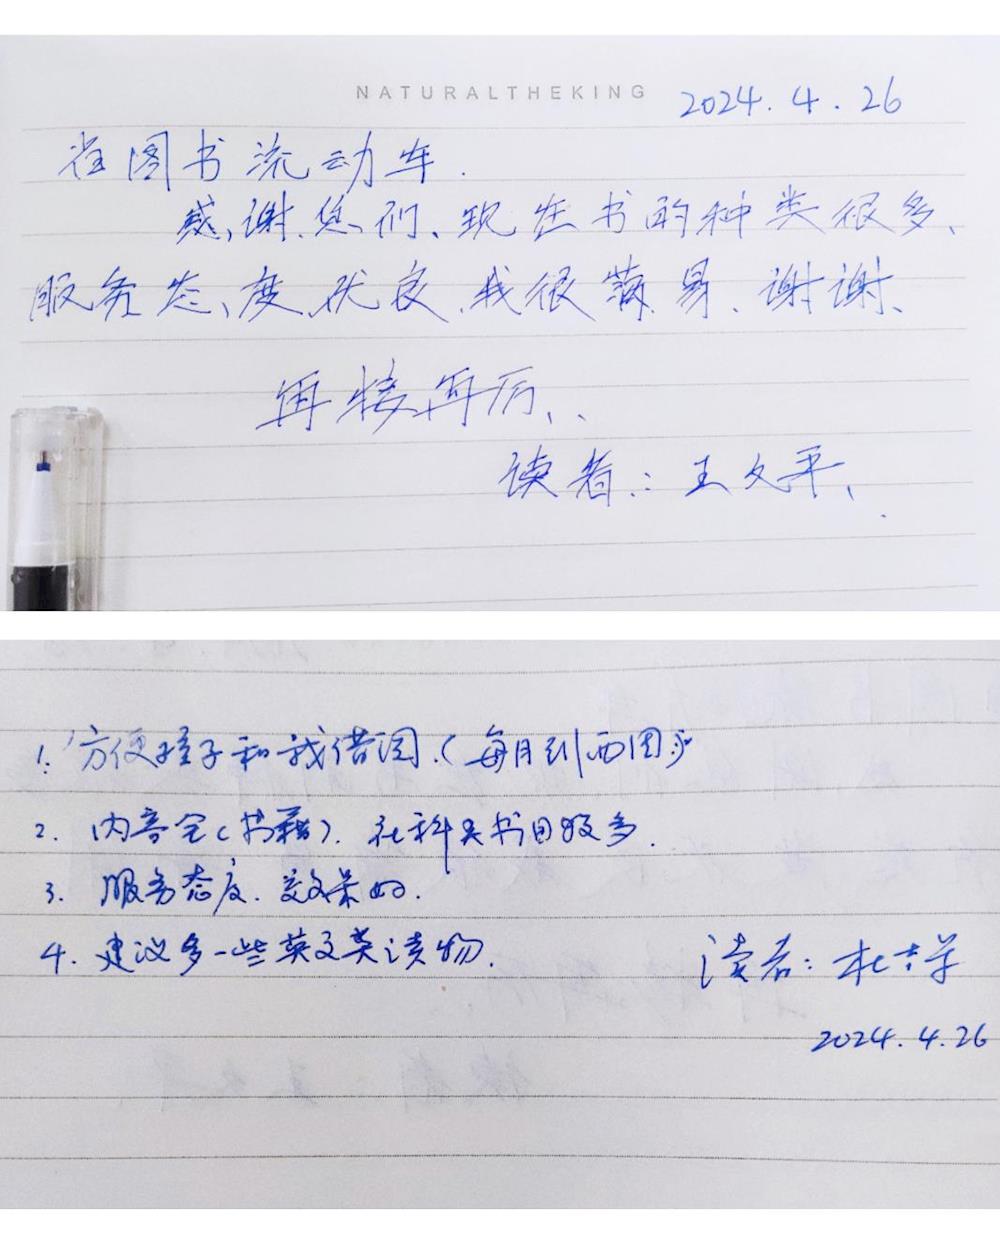 NATURALTHEKING
2024.4.26
省图书流动车.
感谢您们、现在书的种类很多、
服务态度优良、我很满意、谢谢、
再接再厉、
读者：王文平、
1. 方便孩子和我借阅.（每月到两周
2. 内容全（书籍）. 社科类书目较多.
3. 服务态度. 效果好.
4. 建议多一些英文类读物.
读者：杜
2024.4.26